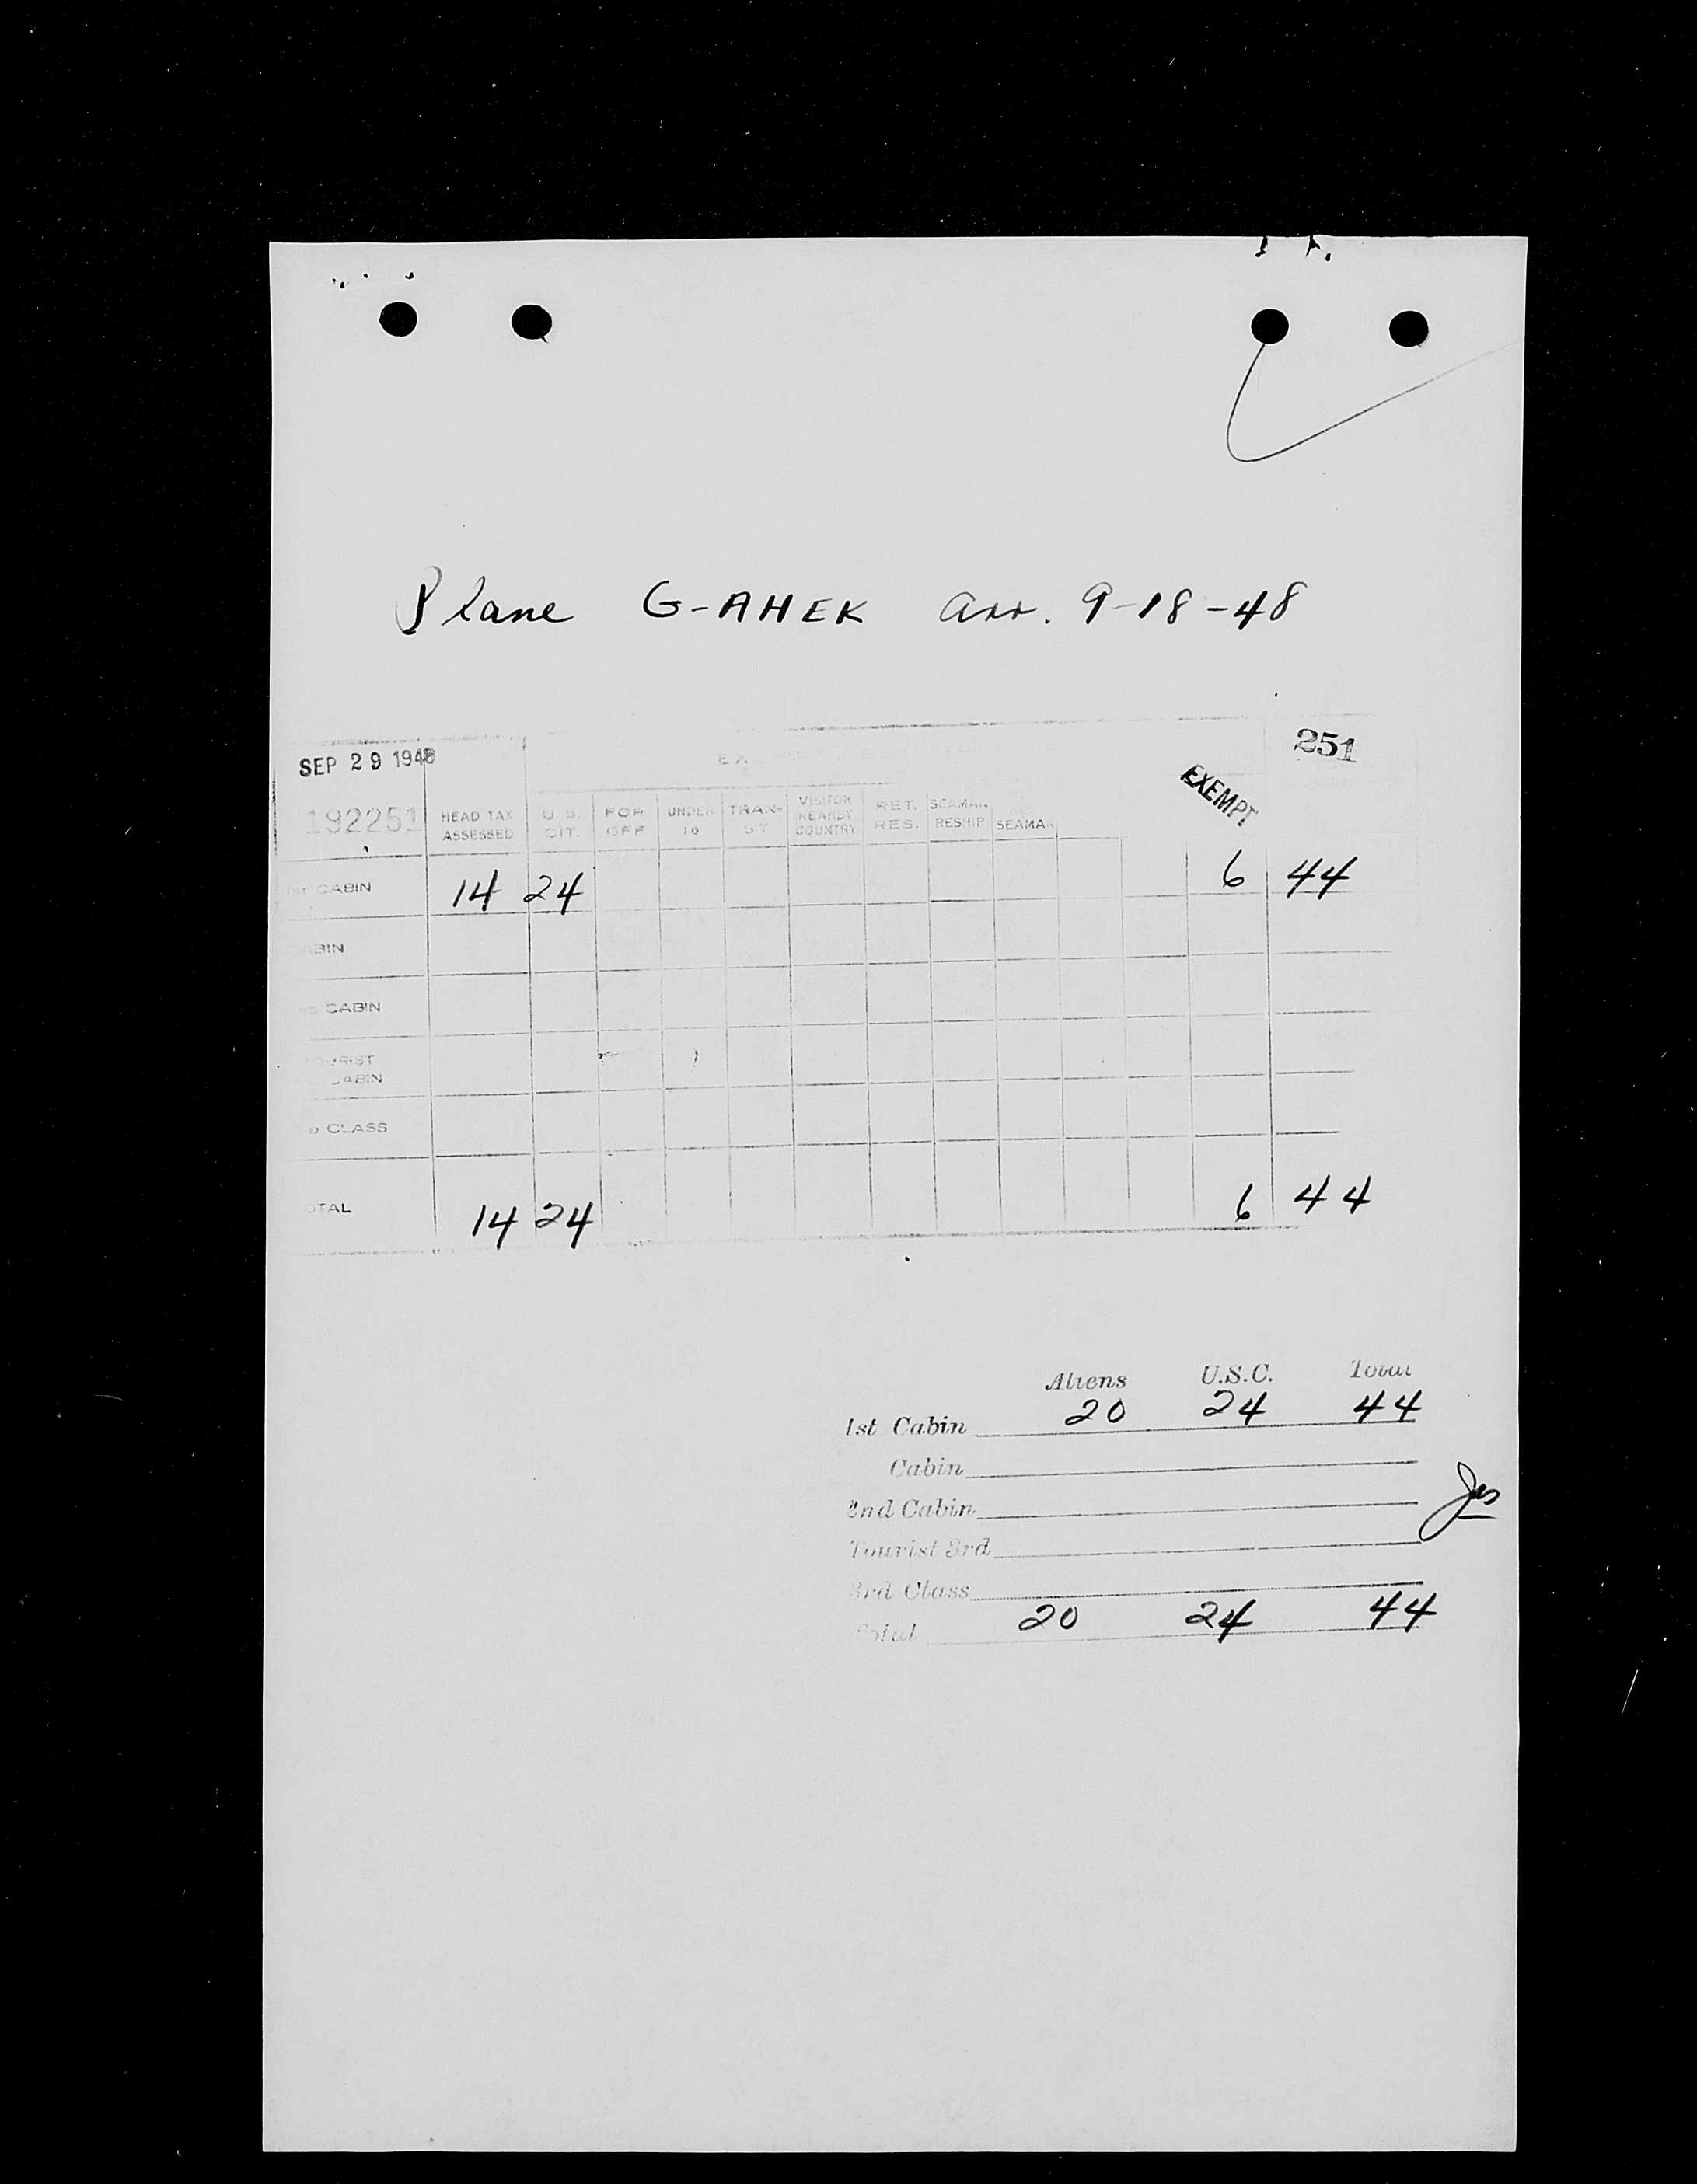 Plane G-AHEK arr. 9-18-48
SEP 29 1948 EX 251
192251 HEAD TAX ASSESSED U.S. CIT. FOR. OFF UNDER 16 TRAN-SIT VISITOR NEARBY COUNTRY RET. RES. SEAMAN RESHIP SEAMAN EXEMPT
1ST CABIN 14 24 6 44
CABIN
CABIN
TOURIST
CABIN
CLASS
TOTAL 14 24 6 44
Aliens U.S.C. Total
1st Cabin 20 24 44
Cabin
2nd Cabin
Tourist 3rd
3rd Class
Total 20 24 44